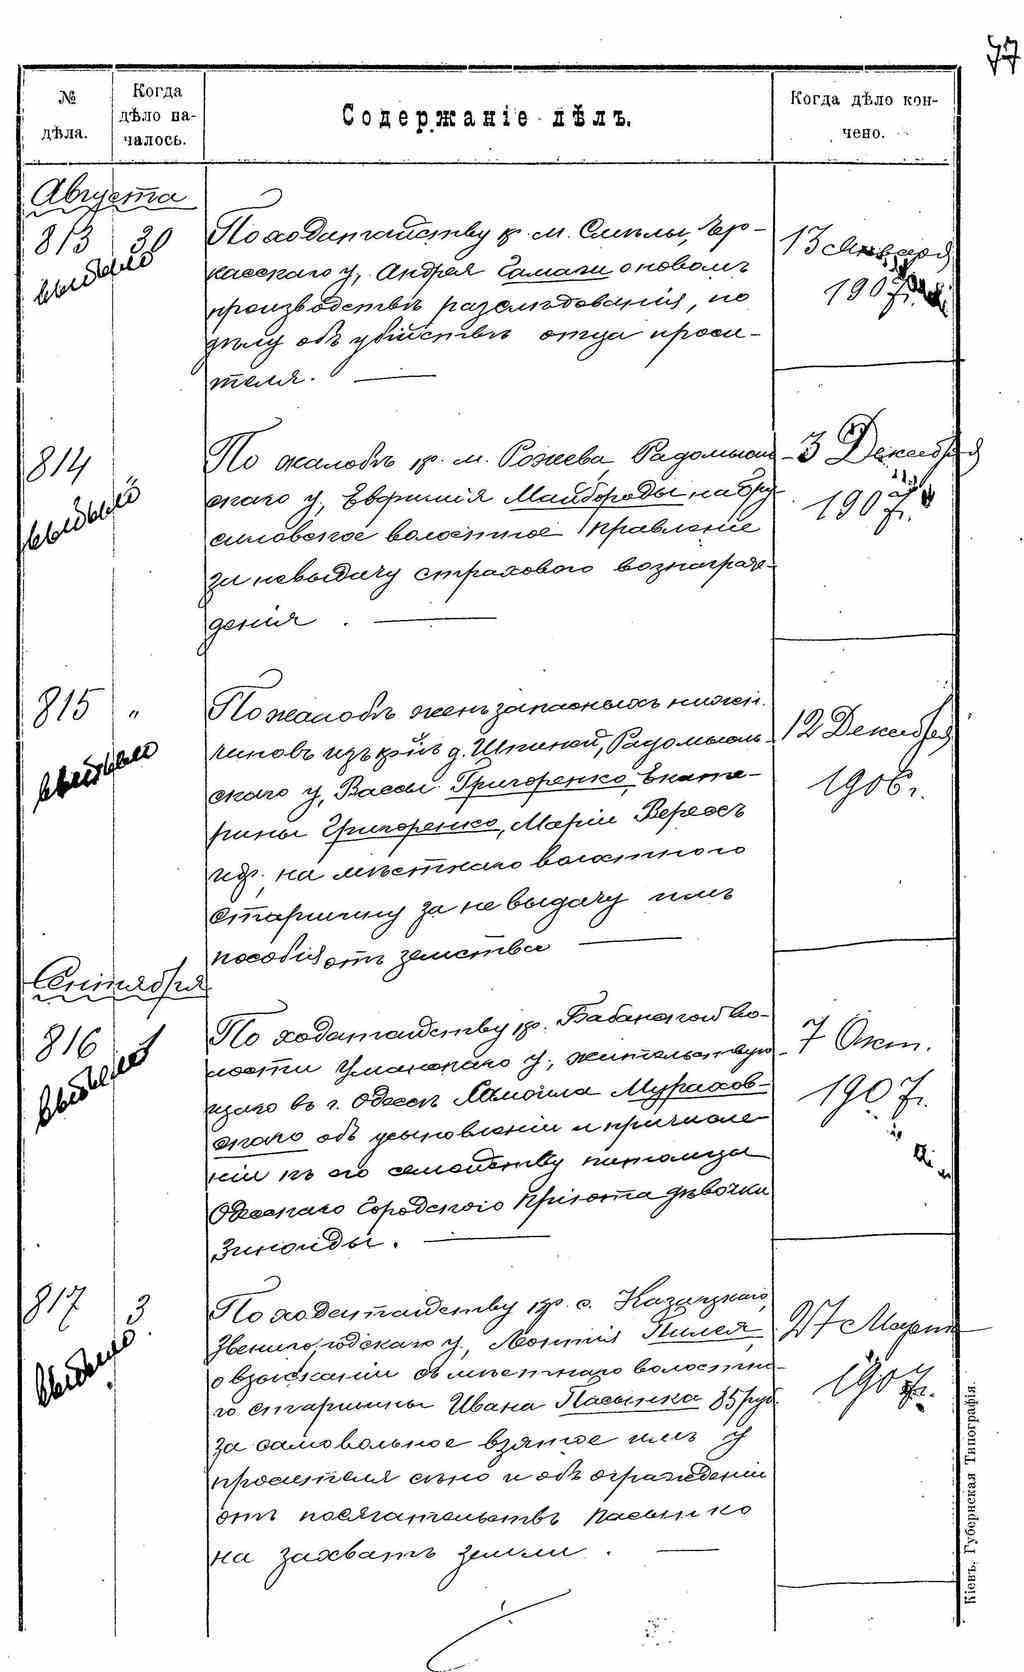 77
№ дѣла.
Когда дѣло началось.
Содержаніе дѣлъ.
Когда дѣло кончено.
Августа
813 30 выбыло
По ходатайству кр. м. Смѣлы, Чер-
касскаго у, Андрея Гамаги о новомъ
производствѣ разслѣдованія, по
дѣлу объ убійствѣ отца проси-
теля.
13 Января
1907 г.
814 " выбыло
По жалобѣ кр. м. Рожева, Радомысль
скаго у, Евфимія Майбороды на Бру
силовское волостное правленіе
за невыдачу страхового вознаграж-
денія.
3 Декабря
1907 г.
815 " выбыло
По жалобѣ женъ запасныхъ нижн.
чиновъ изъ кр. д. Шпиней, Радомысль-
скаго у, Васы Григоренко, Екате-
рины Григоренко, Маріи Вересъ
и др. на мѣстнаго волостного
старшину за невыдачу имъ
пособія отъ земства
12 Декабря
1906 г.
Сентября
816 выбыло
По ходатайству кр. Бабанской во-
лости Уманскаго у, жительствую-
щаго въ г. Одессѣ Самойла Мурахов-
скаго объ усыновленіи и причисле
ніи къ его семейству питомца
Одесскаго Городского пріюта дѣвочки
Зинаиды.
7 Окт.
1907 г.
817 3 выбыло
По ходатайству кр. с. Казацкаго,
Звенигородскаго у, Леонтія Пилея
о взысканіи съ мѣстнаго волостно-
го старшины Ивана Пасынка 85 руб.
за самовольное взятое имъ у
просителя сѣно и объ огражденіи
отъ посягательствъ Пасынко
на захватъ земли.
27 Марта
1907 г.
Кіевъ, Губернская Типографія.